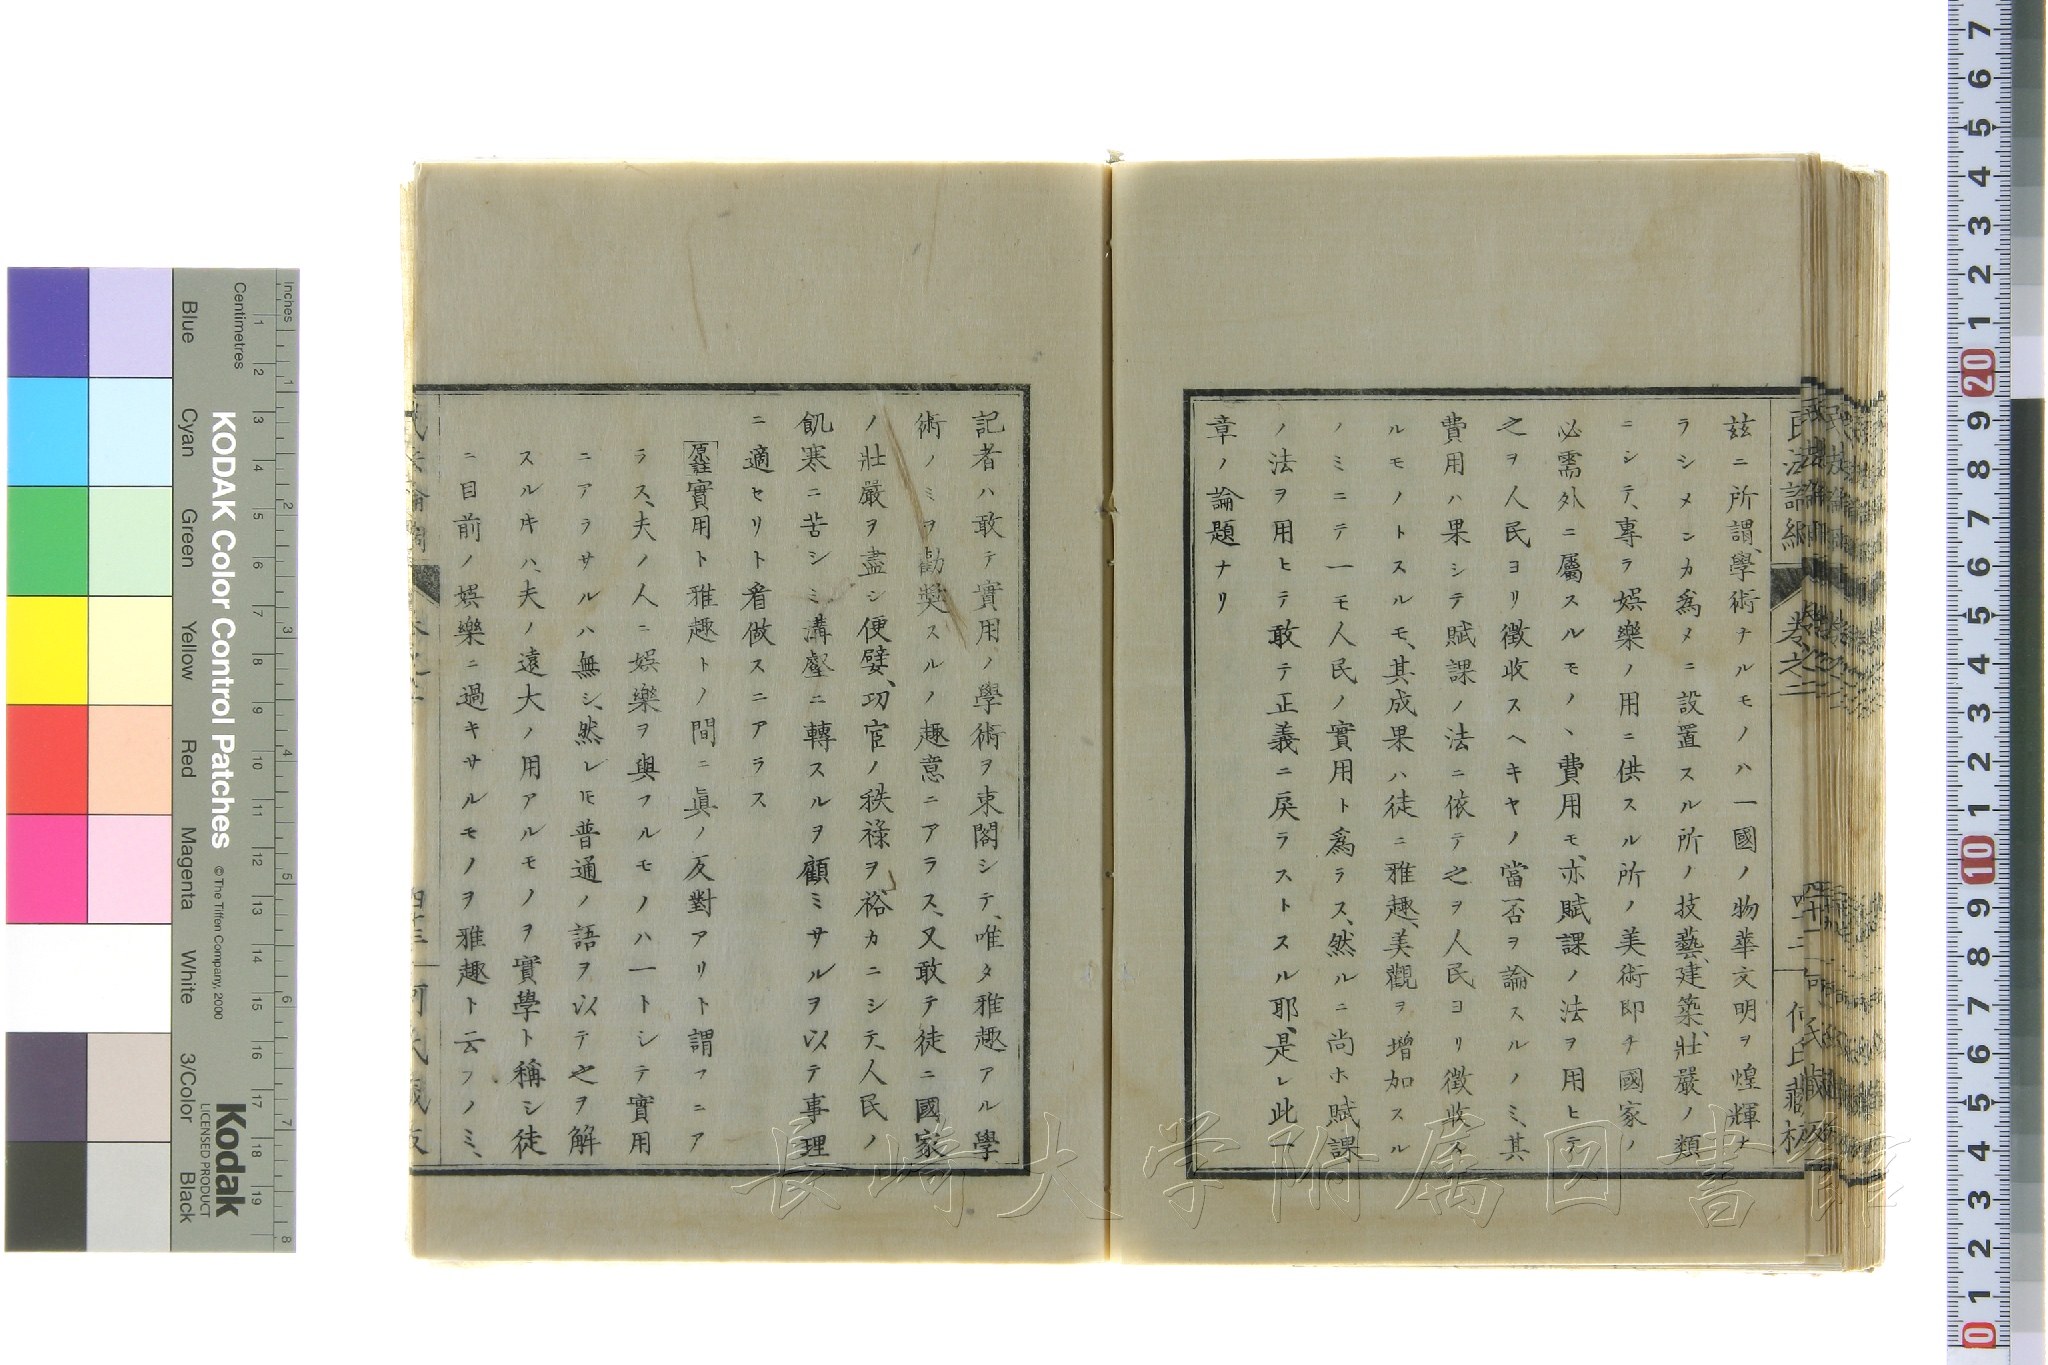 民法論綱 卷之二 四十二 何氏藏板
茲ニ所謂學術ナルモノハ一國ノ物華文明ヲ煌輝ナ
ラシメンカ爲メニ設置スル所ノ技藝、建築、壯嚴ノ類
ニシテ、專ラ娯樂ノ用ニ供スル所ノ美術即チ國家ノ
必需外ニ屬スルモノヽ費用モ、亦賦課ノ法ヲ用ヒテ
之ヲ人民ヨリ徵收スヘキヤノ當否ヲ論スルノミ、其
費用ハ果シテ賦課ノ法ニ依テ之ヲ人民ヨリ徵收ス
ルモノトスルモ、其成果ハ徒ニ雅趣、美觀ヲ增加スル
ノミニテ一モ人民ノ實用ト爲ラス、然ルニ尚ホ賦課
ノ法ヲ用ヒテ敢テ正義ニ戾ラストスル耶、是レ此
章ノ論題ナリ
記者ハ敢テ實用ノ學術ヲ束閣シテ、唯タ雅趣アル學
術ノミヲ勸奬スルノ趣意ニアラス、又敢テ徒ニ國家
ノ壯嚴ヲ盡シ便嬖、功官ノ秩祿ヲ裕カニシテ、人民ノ
飢寒ニ苦シミ溝壑ニ轉スルヲ顧ミサルヲ以テ事理
ニ適セリト看做スニアラス
原註 實用ト雅趣トノ間ニ眞ノ反對アリト謂フニア
ラス、夫ノ人ニ娯樂ヲ與フルモノハ一トシテ實用
ニアラサルハ無シ、然レㇳモ普通ノ語ヲ以テ之ヲ解
スルキハ、夫ノ遠大ノ用アルモノヲ實學ト稱シ徒
ニ目前ノ娯樂ニ過キサルモノヲ雅趣ト云フノミ、
四十三
長崎大学附属図書館
Inches
Centimetres
KODAK Color Control Patches
© The Tiffen Company, 2000
Blue Cyan Green Yellow Red Magenta White 3/Color Black
Kodak
LICENSED PRODUCT
1 2 3 4 5 6 7 8 9 10 11 12 13 14 15 16 17 18 19
1 2 3 4 5 6 7 8
7 6 5 4 3 2 1 20 9 8 7 6 5 4 3 2 1 10 9 8 7 6 5 4 3 2 1 0